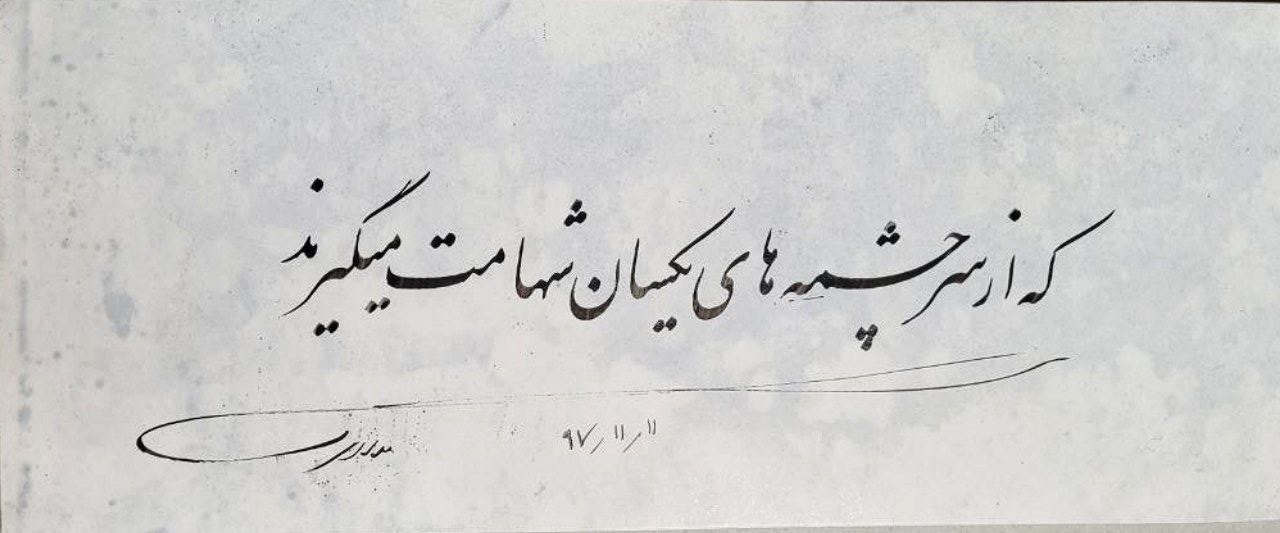 که از سرچشمه های یکسان شهامت میگیرند
۹۷/۱۱/۱۱